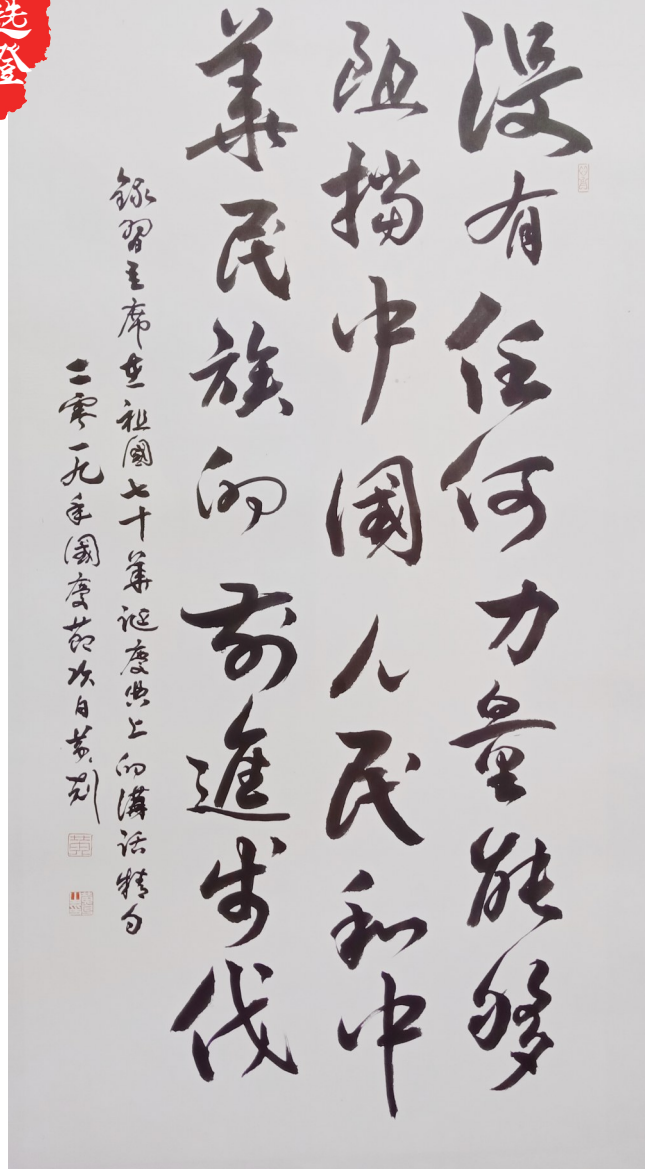 没有任何力量能够
阻挡中國人民和中
華民族的前進步伐
錄習主席在祖國七十華誕慶典上的講話精句
二零一九年國慶節次日
选登